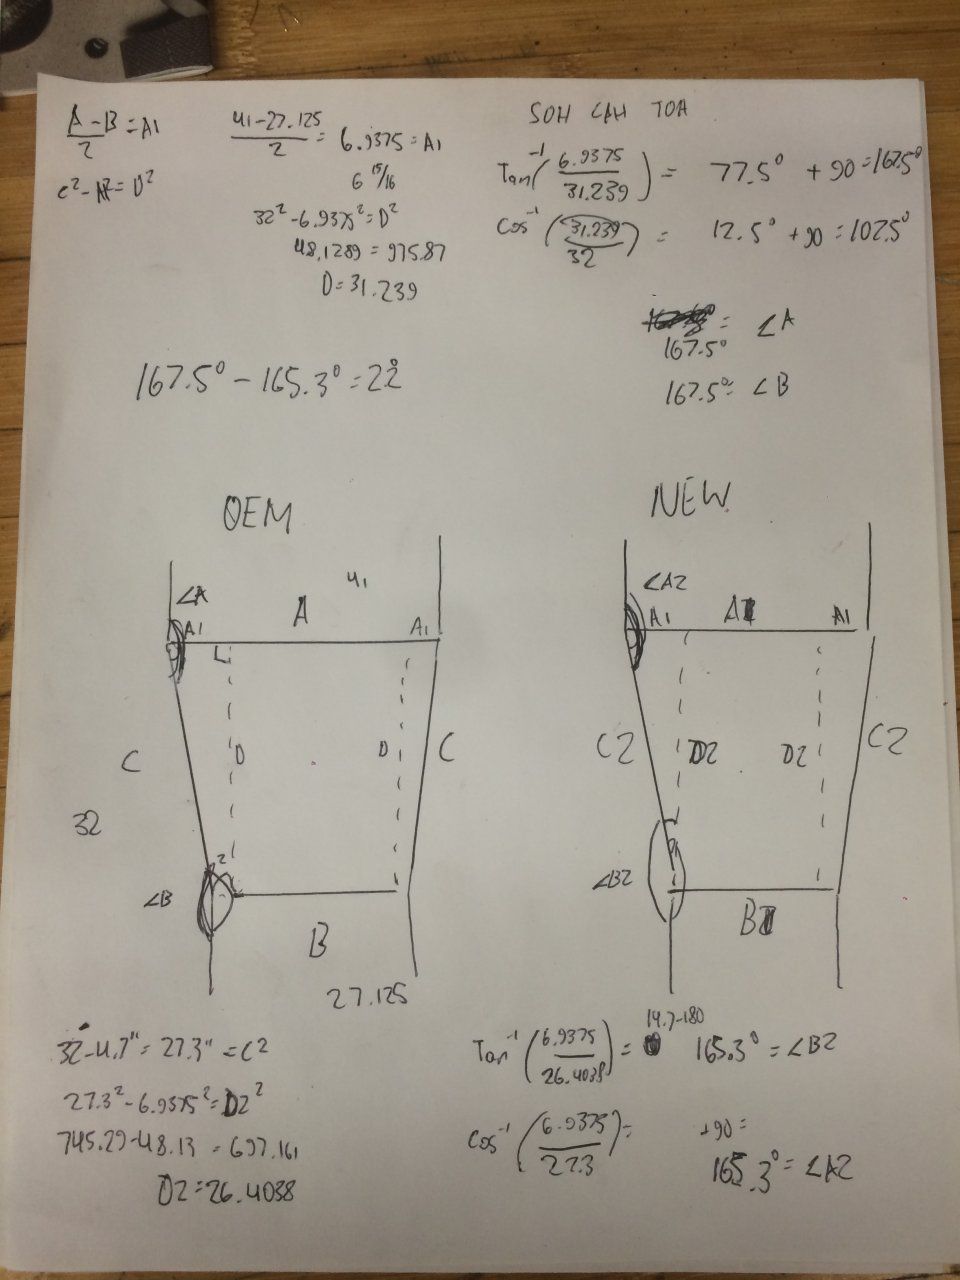 A - B = A1
2
C² - A² = D²
41 - 27.125 = 6.9375 = A1
2
6 15/16
32² - 6.9375² = D²
48.1289 = 975.87
D = 31.239
SOH CAH TOA
Tan⁻¹(6.9375/31.239) = 77.5° + 90 = 167.5°
Cos⁻¹(31.239/32) = 12.5° + 90 = 102.5°
= ∠A
167.5°
167.5° = ∠B
167.5° - 165.3° = 2.2°
OEM
∠A
41
A
A1
A1
C
D
D
C
32
∠B
B
27.125
NEW
∠A2
A1
A
A1
C2
D2
D2
C2
∠B2
B
32 - 4.7" = 27.3" = C2
27.3² - 6.9375² = D2²
745.29 - 48.13 = 697.161
D2 = 26.4038
14.7-180
Tan⁻¹(6.9375/26.4038) = 165.3° = ∠B2
Cos⁻¹(6.9375/27.3) = +90 =
165.3° = ∠A2